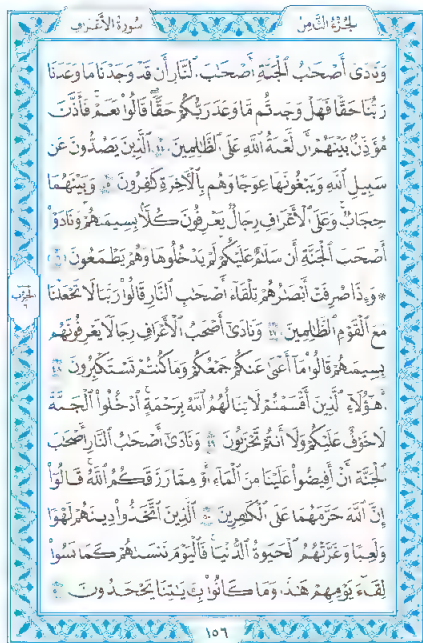 الجزء الثامن
سورة الأعراف
وَنَادَىٰ أَصْحَابُ الْجَنَّةِ أَصْحَابَ النَّارِ أَن قَدْ وَجَدْنَا مَا وَعَدَنَا
رَبُّنَا حَقًّا فَهَلْ وَجَدتُّم مَّا وَعَدَ رَبُّكُمْ حَقًّا قَالُوا نَعَمْ فَأَذَّنَ
مُؤَذِّنٌ بَيْنَهُمْ أَن لَّعْنَةُ اللَّهِ عَلَى الظَّالِمِينَ ٤٤ الَّذِينَ يَصُدُّونَ عَن
سَبِيلِ اللَّهِ وَيَبْغُونَهَا عِوَجًا وَهُم بِالْآخِرَةِ كَافِرُونَ ٤٥ وَبَيْنَهُمَا
حِجَابٌ وَعَلَى الْأَعْرَافِ رِجَالٌ يَعْرِفُونَ كُلًّا بِسِيمَاهُمْ وَنَادَوْا
أَصْحَابَ الْجَنَّةِ أَن سَلَامٌ عَلَيْكُمْ لَمْ يَدْخُلُوهَا وَهُمْ يَطْمَعُونَ ٤٦
* وَإِذَا صُرِفَتْ أَبْصَارُهُمْ تِلْقَاءَ أَصْحَابِ النَّارِ قَالُوا رَبَّنَا لَا تَجْعَلْنَا
مَعَ الْقَوْمِ الظَّالِمِينَ ٤٧ وَنَادَىٰ أَصْحَابُ الْأَعْرَافِ رِجَالًا يَعْرِفُونَهُم
بِسِيمَاهُمْ قَالُوا مَا أَغْنَىٰ عَنكُمْ جَمْعُكُمْ وَمَا كُنتُمْ تَسْتَكْبِرُونَ ٤٨
أَهَٰؤُلَاءِ الَّذِينَ أَقْسَمْتُمْ لَا يَنَالُهُمُ اللَّهُ بِرَحْمَةٍ ادْخُلُوا الْجَنَّةَ
لَا خَوْفٌ عَلَيْكُمْ وَلَا أَنتُمْ تَحْزَنُونَ ٤٩ وَنَادَىٰ أَصْحَابُ النَّارِ أَصْحَابَ
الْجَنَّةِ أَنْ أَفِيضُوا عَلَيْنَا مِنَ الْمَاءِ أَوْ مِمَّا رَزَقَكُمُ اللَّهُ قَالُوا
إِنَّ اللَّهَ حَرَّمَهُمَا عَلَى الْكَافِرِينَ ٥٠ الَّذِينَ اتَّخَذُوا دِينَهُمْ لَهْوًا
وَلَعِبًا وَغَرَّتْهُمُ الْحَيَاةُ الدُّنْيَا فَالْيَوْمَ نَنسَاهُمْ كَمَا نَسُوا
لِقَاءَ يَوْمِهِمْ هَٰذَا وَمَا كَانُوا بِآيَاتِنَا يَجْحَدُونَ ٥١
١٥٦